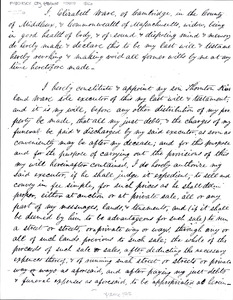 I, Elizabeth Ware, of Cambridge, in the County
of Middlesex, & Commonwealth of Massachusetts, widow, being
in good health of body, & of sound & disposing mind & memory
do hereby make & declare this to be my last will & testament
hereby revoking & making void all former wills by me at any
time heretofore made.
I hereby constitute & appoint my son Thornton Kirkland
Ware, sole executor of this my last will & testament;
and it is my will, before any other distribution of my pro-
perty be made, that all my just debts, & the charges of my
funeral be paid & discharged by my said executor, as soon as
conveniently may be after my decease; and for this purpose
and for the purpose of carrying out the provisions of this
my will hereinafter contained, I do hereby authorize my
said executor, if he shall judge it expedient, to sell and
convey in fee simple, for such prices as he shall deem
proper, either at auction or at private sale, all or any
part of my messuages, lands, & tenements, and (if it shall
be deemed by him to be advantageous for such sale) to run
a street or streets, or private way or ways through any or
all of such lands previous to such sale; the whole of the
proceeds of such sale or sales, after deducting the necessary
expenses thereof, & of running such street or streets or private
way or ways as aforesaid, and after paying my just debts
& funeral expenses as aforesaid, to be appropriated as herein-